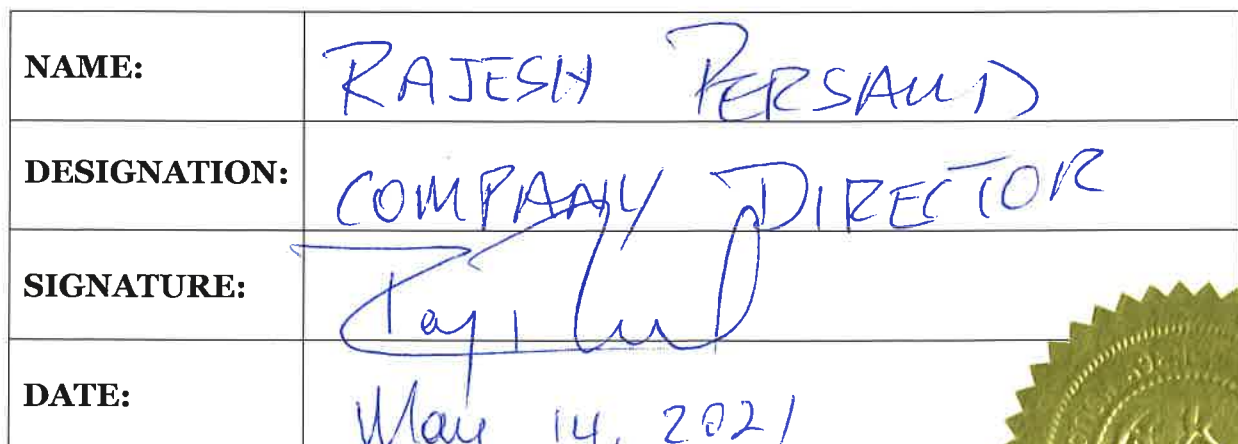 NAME: RAJESH PERSAUD
DESIGNATION: COMPANY DIRECTOR
SIGNATURE:
DATE: May 14, 2021